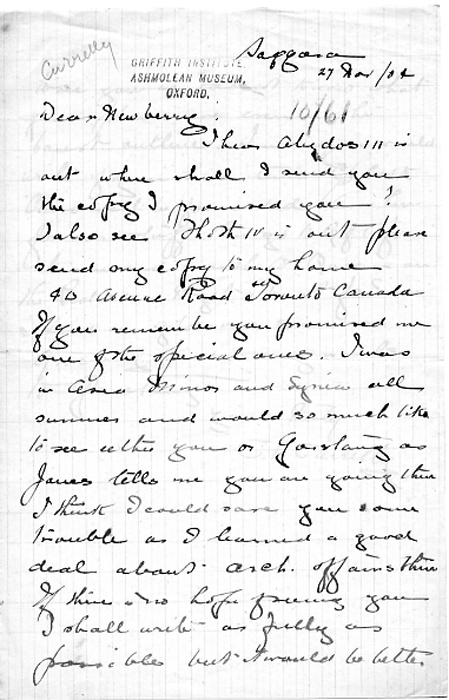 Currelly
GRIFFITH INSTITUTE
ASHMOLEAN MUSEUM,
OXFORD.
Saqqara
27 Nov/04
10/61
Dear Newberry:
I hear Abydos III is
out where shall I send you
the copy I promised you?
I also see Thoth IV is out please
send my copy to my home
40 Avenue Road Toronto Canada
If you remember you promised me
one of the special ones. I was
in Asia Minor and Syria all
summer and would so much like
to see either you or Garstang as
Jones tells me you are going there
I think I could save you some
trouble as I learned a good
deal about arch. affairs there
If there is no hope of seeing you
I shall write as fully as
possible but it would be better